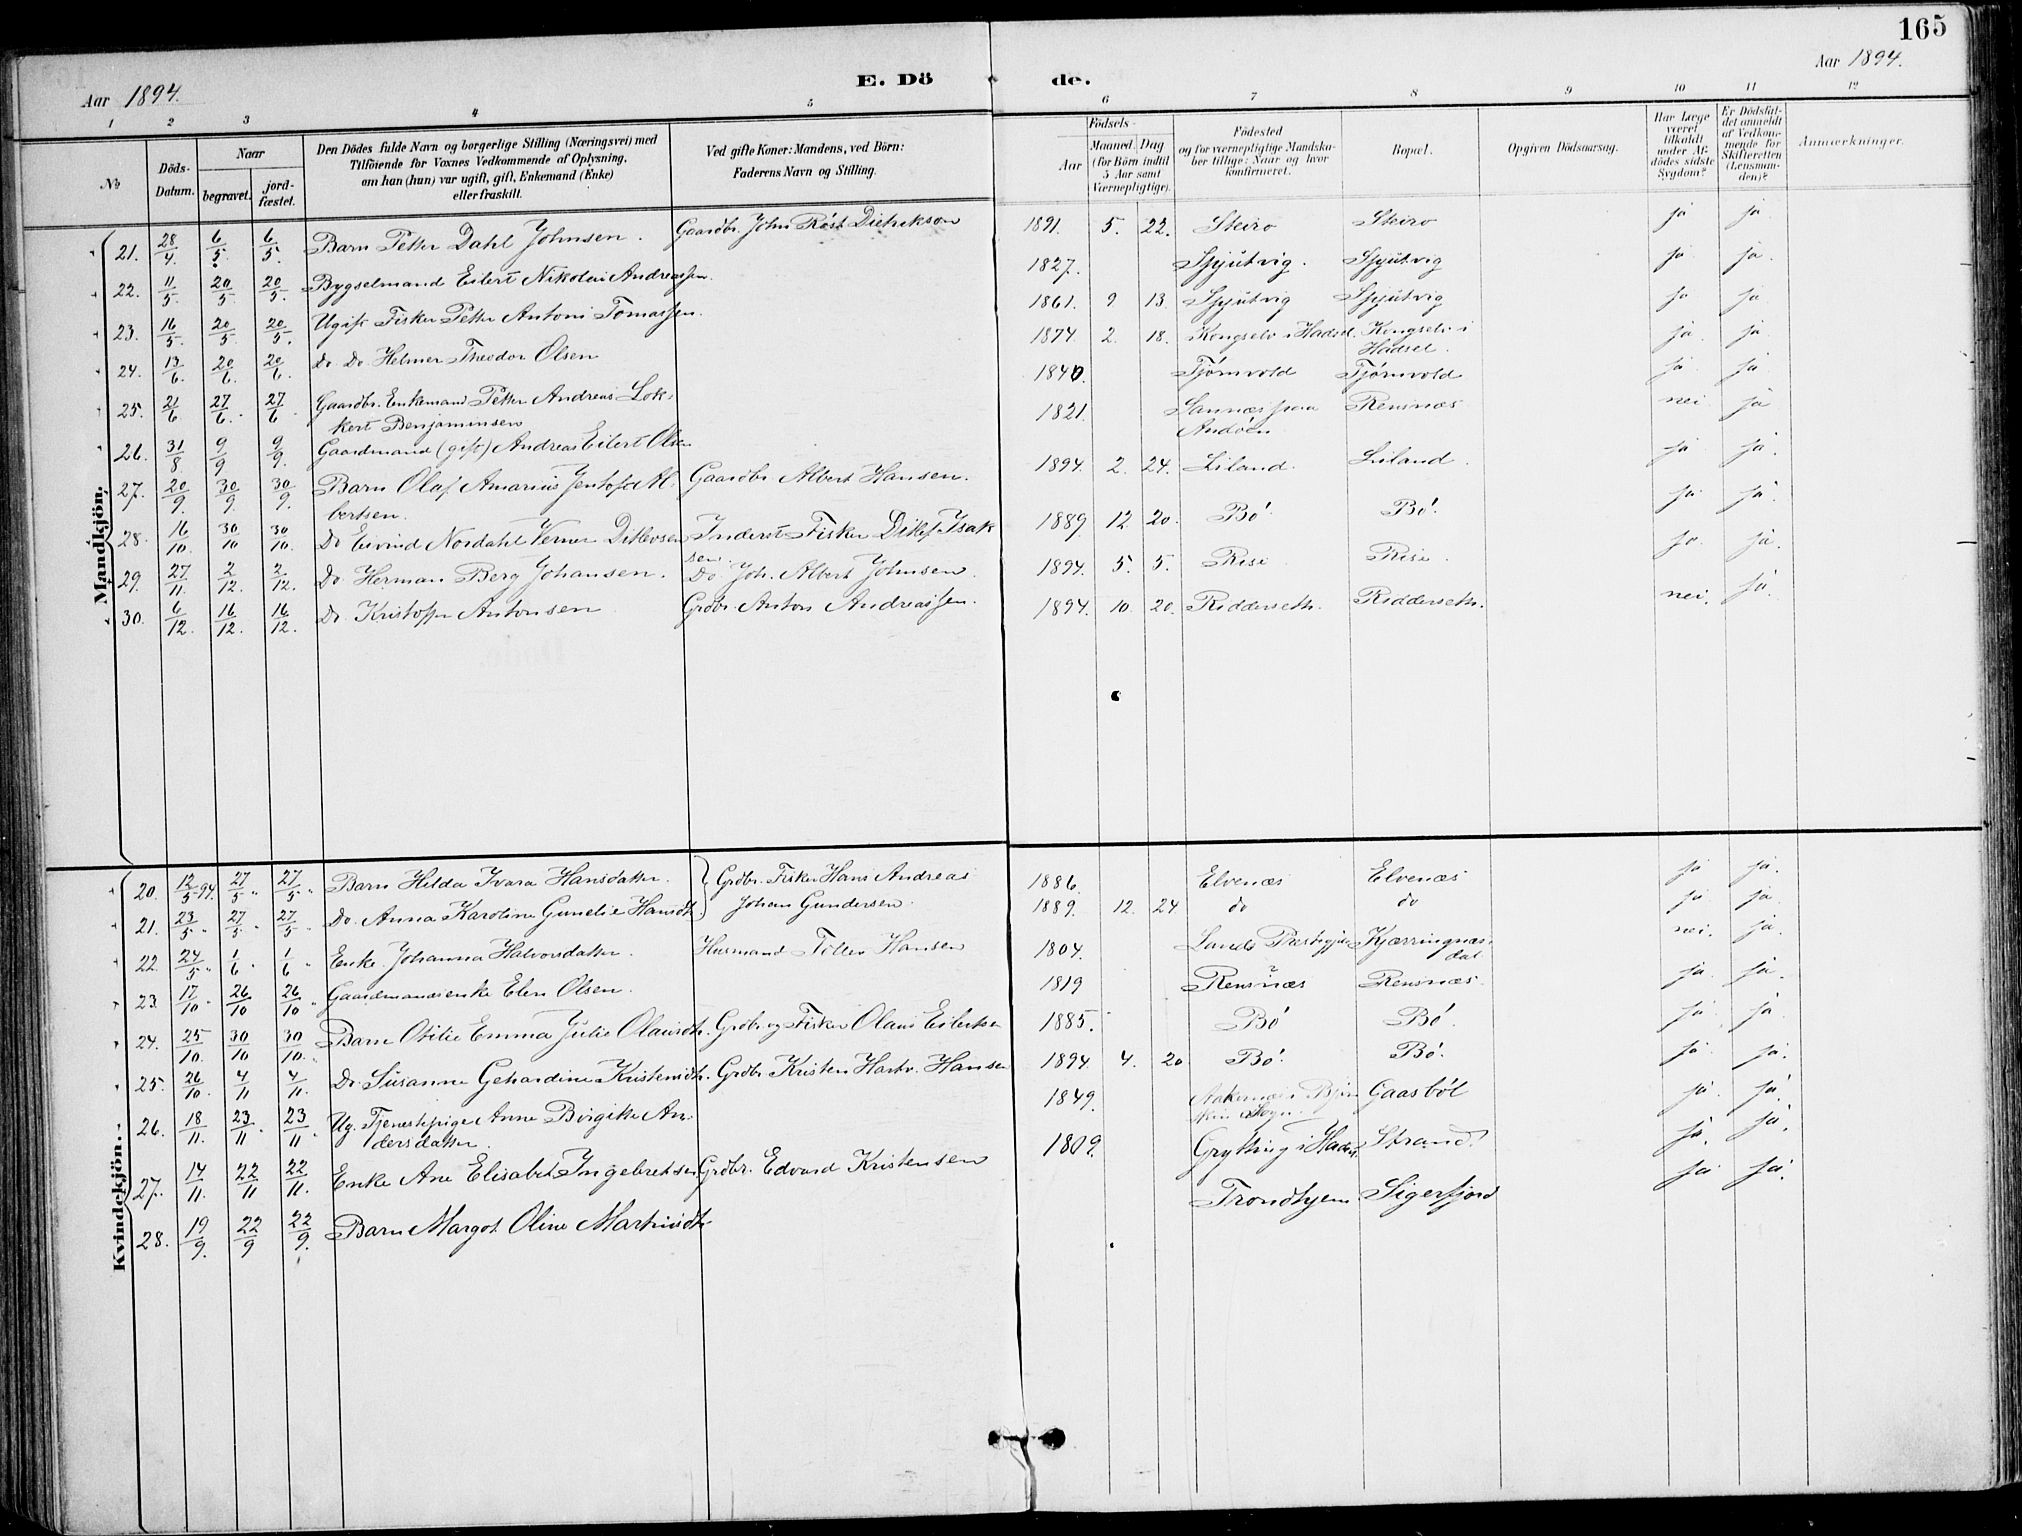 165
Aar 1894.
E. Dö de.
Aar 1894.
1 2 3 4 5 6 7 8 9 10 11 12
No
Döds-Datum.
Naar
begravet.
jord-fæstet.
Den Dödes fulde Navn og borgerlige Stilling (Næringsvei) med
Tilföiende for Voxnes Vedkommende af Oplysning,
om han (hun) var ugift, gift, Enkemand (Enke)
eller fraskilt.
Ved gifte Koner: Mandens, ved Börn:
Faderens Navn og Stilling.
Födsels-
Aar
Maaned. Dag
(for Börn indtil
5 Aar samt
Værnepligtige).
Födested
og for værnepligtige Mandska-
ber tillige: Naar og hvor
konfirmeret.
Bopæl.
Opgiven Dödsaarsag.
Har Læge
været
tilkaldt
under Af-
dödes sidste
Sygdom?
Er Dödsfal-
det anmeldt
af Vedkom-
mende for
Skifteretten
(Lensman-
den)?
Anmærkninger.
Mandkjön.
21. 28/4. 6/5 6/5. Barn Petter Dahl Johnsen. Gaardbr. John Røst Dietrikson 1891. 5. 22. Steiro Steiro ja ja.
22. 11/5. 20/5 20/5. Bygselmand Eilert Nikolai Andreassen. 1827. Spjutvig. Spjutvig ja. ja.
23. 16/5. 20/5 20/5. Ugift Fisker Petter Antoni Tomassen. 1861. 9 13. Spjutvig Spjutvig ja ja.
24. 13/6. 20/6. 20/6. Do Do Helmer Theodor Olsen 1874 2. 18. Kongselv i Hadsel. Kongselv i
Hadsel. ja. ja.
25. 21/6 27/6. 27/6. Gaardbr. Enkemand Petter Andreas Lok-
kert Benjaminsen 1840. Tjørnvold Tjørnvold ja. ja
26. 31/8. 9/9 9/9. Gaardmand (gift) Andreas Eilert Olsen 1821. Sannæs paa
Andøen Rensnæs nei ja
27. 20/9. 30/9. 30/9. Barn Olaf Amarius Jentoft Al-
bertsen. Gaardbr. Albert Hansen. 1894. 2. 24. Liland. Liland. ja. ja.
28. 16/10. 30/10 30/10. Do Eivind Nordahl Verner Ditlevsen Inderst Fisker Ditlef Isak
sen 1889. 12. 20. Bø. Bø. ja ja.
29. 27/11. 2/12. 2/12. Do Herman Berg Johansen. Do Joh. Albert Johnsen. 1894. 5. 5. Rise Rise. ja. ja.
30. 6/12. 16/12. 16/12. Do Kristoffer Antonsen Grdbr. Anton Andreassen. 1894. 10. 20. Ridderseth. Ridderseth. nei. ja.
Kvindekjön.
20. 12/5-94. 27/5 27/5 Barn Hilda Ivara Hansdatter. Grdbr. Fisker Hans Andreas 1886. Elvenæs Elvenæs ja ja.
21. 23/5 27/5 27/5 Do. Anna Karoline Gunelie Hansdtr Johan Gundersen. 1889. 12. 24 do do ja. ja
22. 24/5 1/6 1/6 Enke Johanna Halvorsdatter Husmand Tollev Hansen 1804. Kjærringnæs-
dal nei. ja.
23. 17/10 26/10 26/10 Gaardmandsenke Elen Olsen. 1819 Rensnæs ? Rensnæs. ja. ja.
24. 25/10. 30/10 30/10. Barn Otilie Emma Julie Olausdtr. Grdbr og Fisker Olaus Eilertsen 1885. Bø Bø. ja. ja.
25. 26/10. 4/11 4/11. Do. Susanne Gehardine Kristensdtr. Grdbr. Kristen Hartv. Hansen 1894 4. 20 Bø. Bø. ja. ja.
26. 18/11. 23/11. 23/11. Ug. Tjenestepige Anne Birgitte An-
dersdatter. 1849. Gaasbøl ja. ja.
27. 14/11. 22/11 22/11. Enke Ane Elisabet Ingebretsen Grdbr. Edvard Kristensen 1809. Grytting i Hadsel Strand. ja. ja.
28. 19/9. 22/9 22/9. Barn Margot Oline Martinsdtr. Trondhjem Sigerfjord ja. ja.